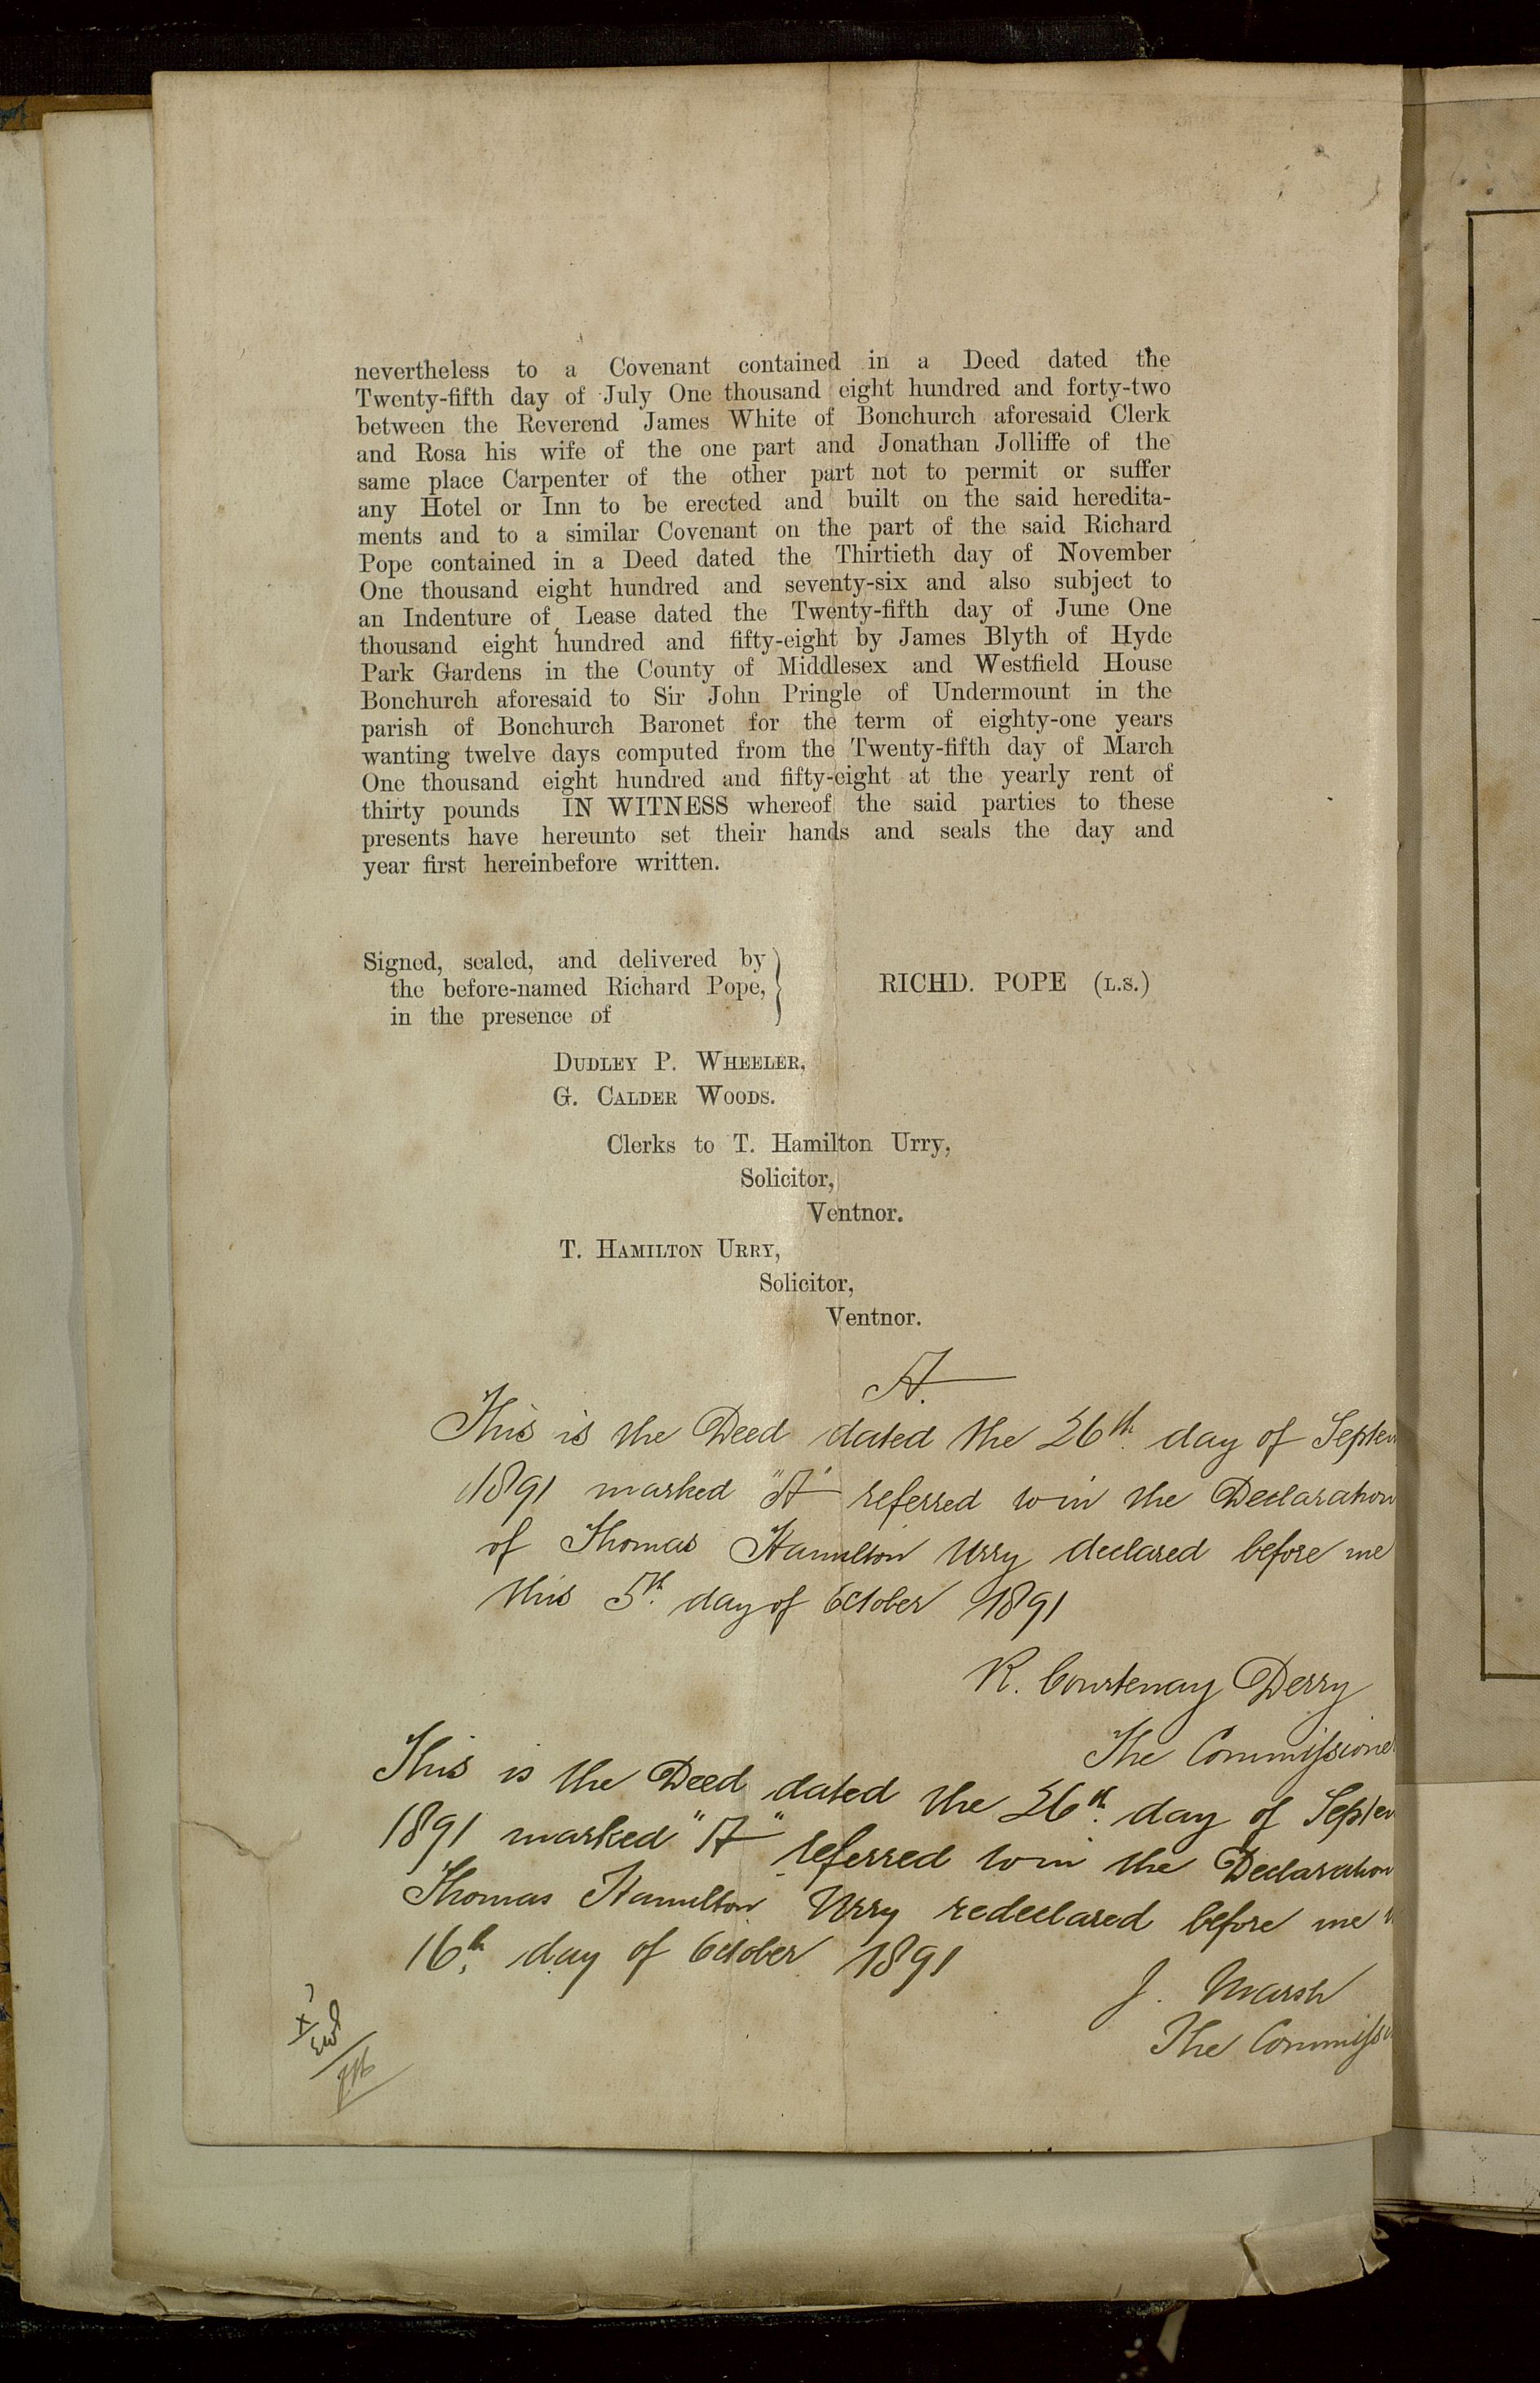 nevertheless to a Covenant contained in a Deed dated the
Twenty-fifth day of July One thousand eight hundred and forty-two
between the Reverend James White of Bonchurch aforesaid Clerk
and Rosa his wife of the one part and Jonathan Jolliffe of the
same place Carpenter of the other part not to permit or suffer
any Hotel or Inn to be erected and built on the said heredita-
ments and to a similar Covenant on the part of the said Richard
Pope contained in a Deed dated the Thirtieth day of November
One thousand eight hundred and seventy-six and also subject to
an Indenture of Lease dated the Twenty-fifth day of June One
thousand eight hundred and fifty-eight by James Blyth of Hyde
Park Gardens in the County of Middlesex and Westfield House
Bonchurch aforesaid to Sir John Pringle of Undermount in the
parish of Bonchurch Baronet for the term of eighty-one years
wanting twelve days computed from the Twenty-fifth day of March
One thousand eight hundred and fifty-eight at the yearly rent of
thirty pounds IN WITNESS whereof the said parties to these
presents have hereunto set their hands and seals the day and
year first hereinbefore written.
Signed, sealed, and delivered by
the before-named Richard Pope,
in the presence of
RICHD. POPE (L.S.)
DUDLEY P. WHEELER,
G. CALDER WOODS.
Clerks to T. Hamilton Urry,
Solicitor,
Ventnor.
T. HAMILTON URRY,
Solicitor,
Ventnor.
A.
This is the Deed dated the 26th day of Septem
1891 marked "A" referred to in the Declaration
of Thomas Hamilton Urry declared before me
this 5th day of October 1891
R. Courtenay Derry
The Commissioner
This is the Deed dated the 26th day of Septem
1891 marked "A" referred to in the Declaration
Thomas Hamilton Urry redeclared before me
16th day of October 1891
J. Marsh
The Commissi